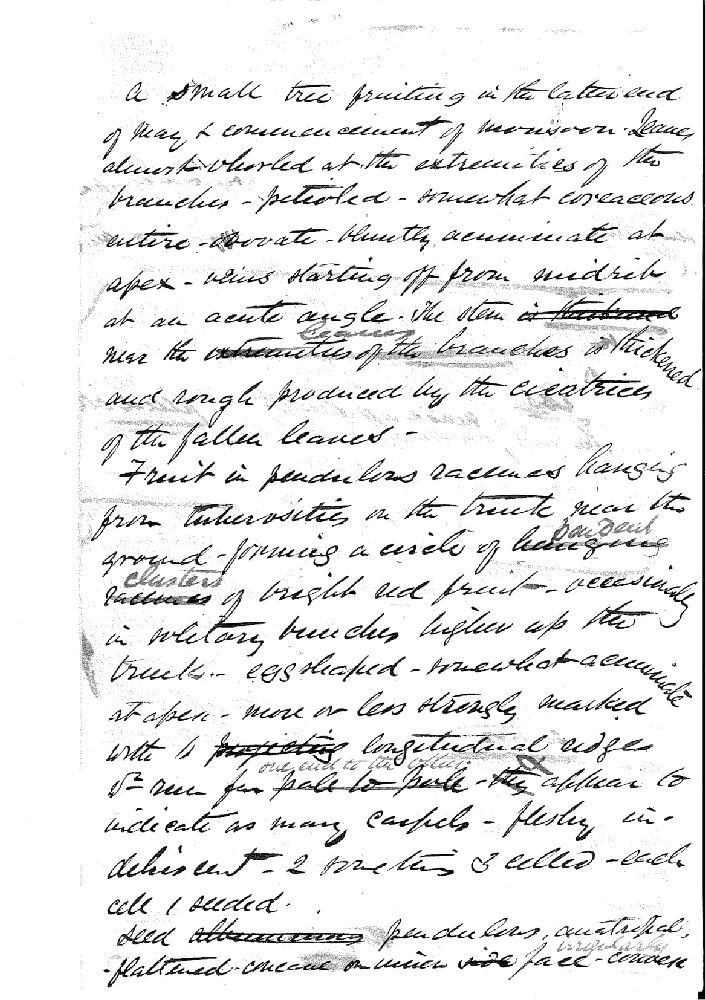 A small tree fruiting in the latter end
of May & commencement of monsoon. Leaves
almost whorled at the extremities of the
branches - petioled - somewhat coreaceous
entire - obovate - bluntly acuminate at
apex - veins starting off from midrib
at an acute angle. The stem is thickened
leaves
near the extremities of the branches is thickened
and rough produced by the cicatrices
of the fallen leaves -
Fruit in pendulous racemes hanging
from tuberosities on the trunk near the
pendent
ground - forming a circle of hanging
clusters
racemes of bright red fruit - occasionally
in solitary bunches higher up the
trunk. - egg shaped - somewhat acuminate
at apex - more or less strongly marked
with 4 projecting longitudinal ridges
one end to the other
wh run from pole to pole - they appear to
indicate as many carpels - fleshy in-
dehiscent - 2 sometimes 3 celled - each
cell 1 seeded.
Seed albuminous pendulous, anatropal,
irregularly
- flattened - concave on inner side face - convex